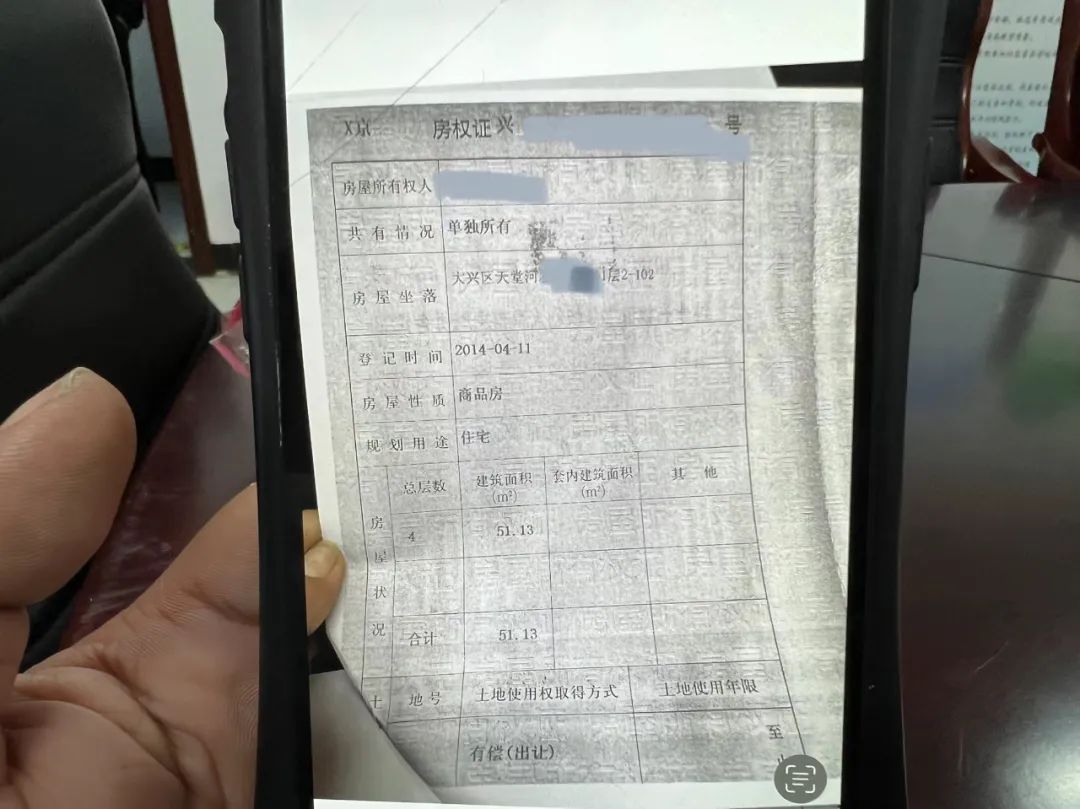 X京 房权证 兴 号
房屋所有权人
共有情况 单独所有
房屋坐落 大兴区天堂河 层2-102
登记时间 2014-04-11
房屋性质 商品房
规划用途 住宅
房屋状况 总层数 建筑面积(m²) 套内建筑面积(m²) 其他
4 51.13
合计 51.13
土 地号 土地使用权取得方式 土地使用年限
有偿(出让) 至